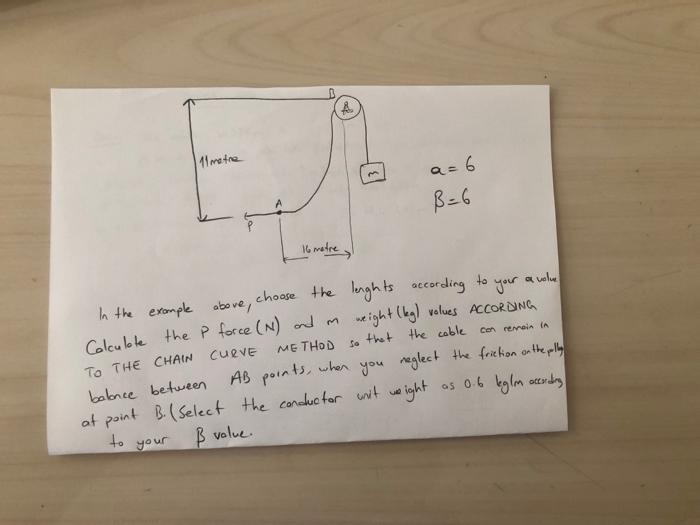 B
A
11 metre
m
a = 6
β = 6
A
P
16 metre
In the example above, choose the lenghts according to your a value
Calculate the P force (N) and m weight (kg) values ACCORDING
TO THE CHAIN CURVE METHOD so that the cable can remain in
balance between AB points, when you neglect the friction on the pulley
at point B. (Select the conductor unit weight as 0.6 kg/m according
to your β value.